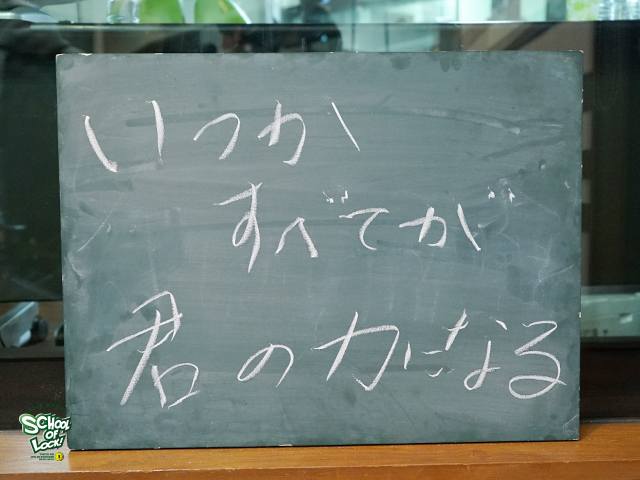 いつか
すべてが
君の力になる
SCHOOL
OF
LOCK!